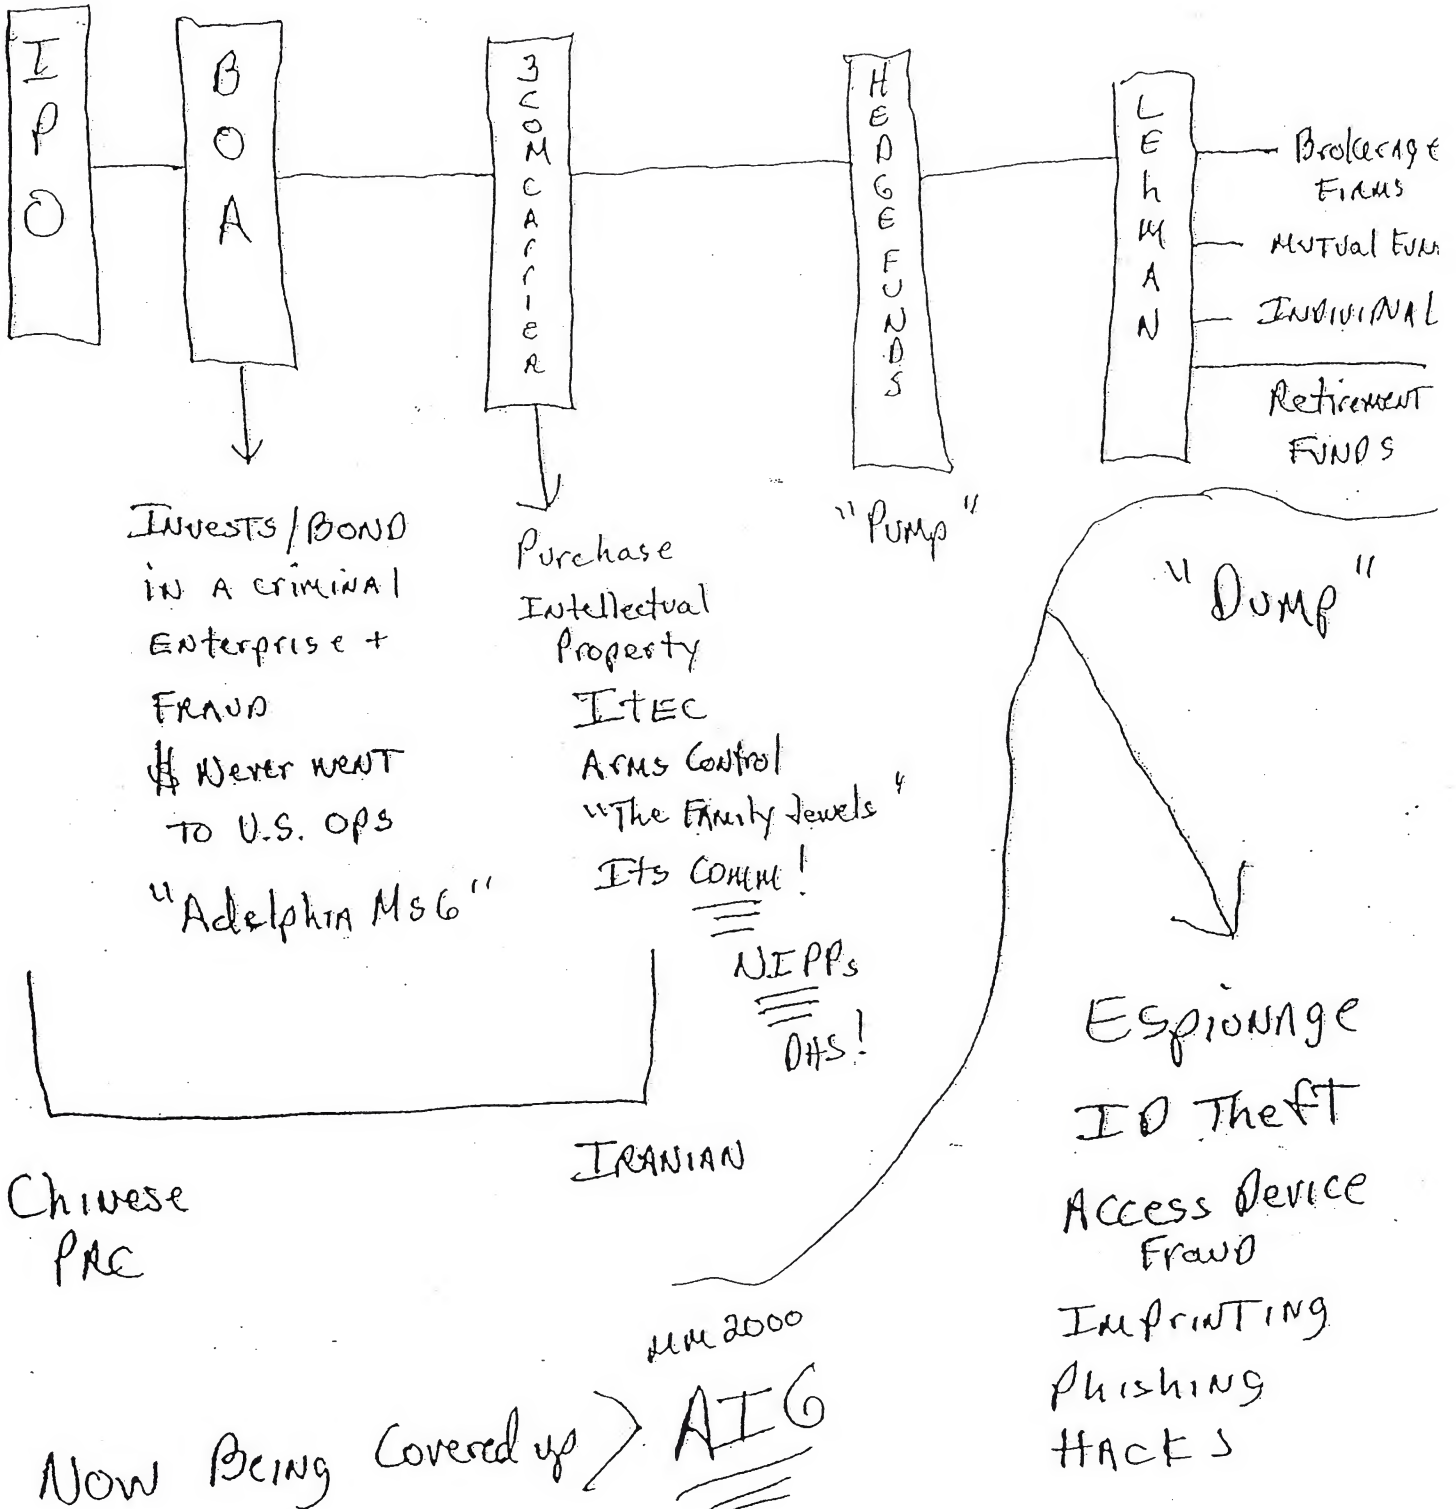 IPO
BOA
3COM CARRIER
HEDGE FUNDS
LEHMAN
Brokerage
FIRMS
MUTUAL FUN
INDIVIDNAL
Retirement
FUNDS
INVESTS/BOND
IN A CRIMINAL
ENTERPRISE +
FRAUD
$ Never went
TO U.S. OPS
"Adelphia MSG"
Purchase
Intellectual
Property
ITEC
Arms Control
"The Family Jewels"
Its Comm!
NIPPs
DHS!
"Pump"
"Dump"
Chinese
PRC
IRANIAN
Espionage
ID Theft
Access Device
Fraud
Imprinting
Phishing
HACKS
MM2000
Now Being Covered up > AIG